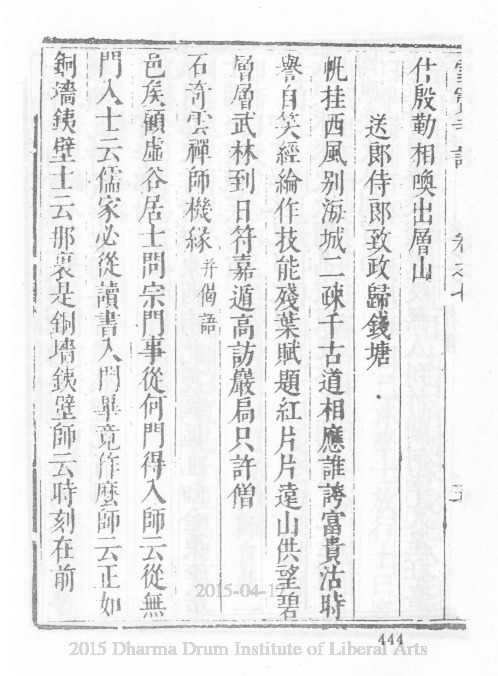 雪竇寺誌　卷之七
什殷勤相喚出層山
送郎侍郎致政歸錢塘
帆挂西風别海城二疎千古道相應誰誇富貴沽時
譽自笑經綸作技能殘葉賦題紅片片遠山供望碧
層層武林到日符嘉遁高訪嚴扃只許僧
石奇雲禪師機緣 并偈語
邑矦顧虛谷居士問宗門事從何門得入師云從無
門入士云儒家必從讀書入門畢竟作麽師云正如
銅墻鉄壁士云那裏是銅墻鉄壁師云時刻在前
2015-04-17
444
2015 Dharma Drum Institute of Liberal Arts